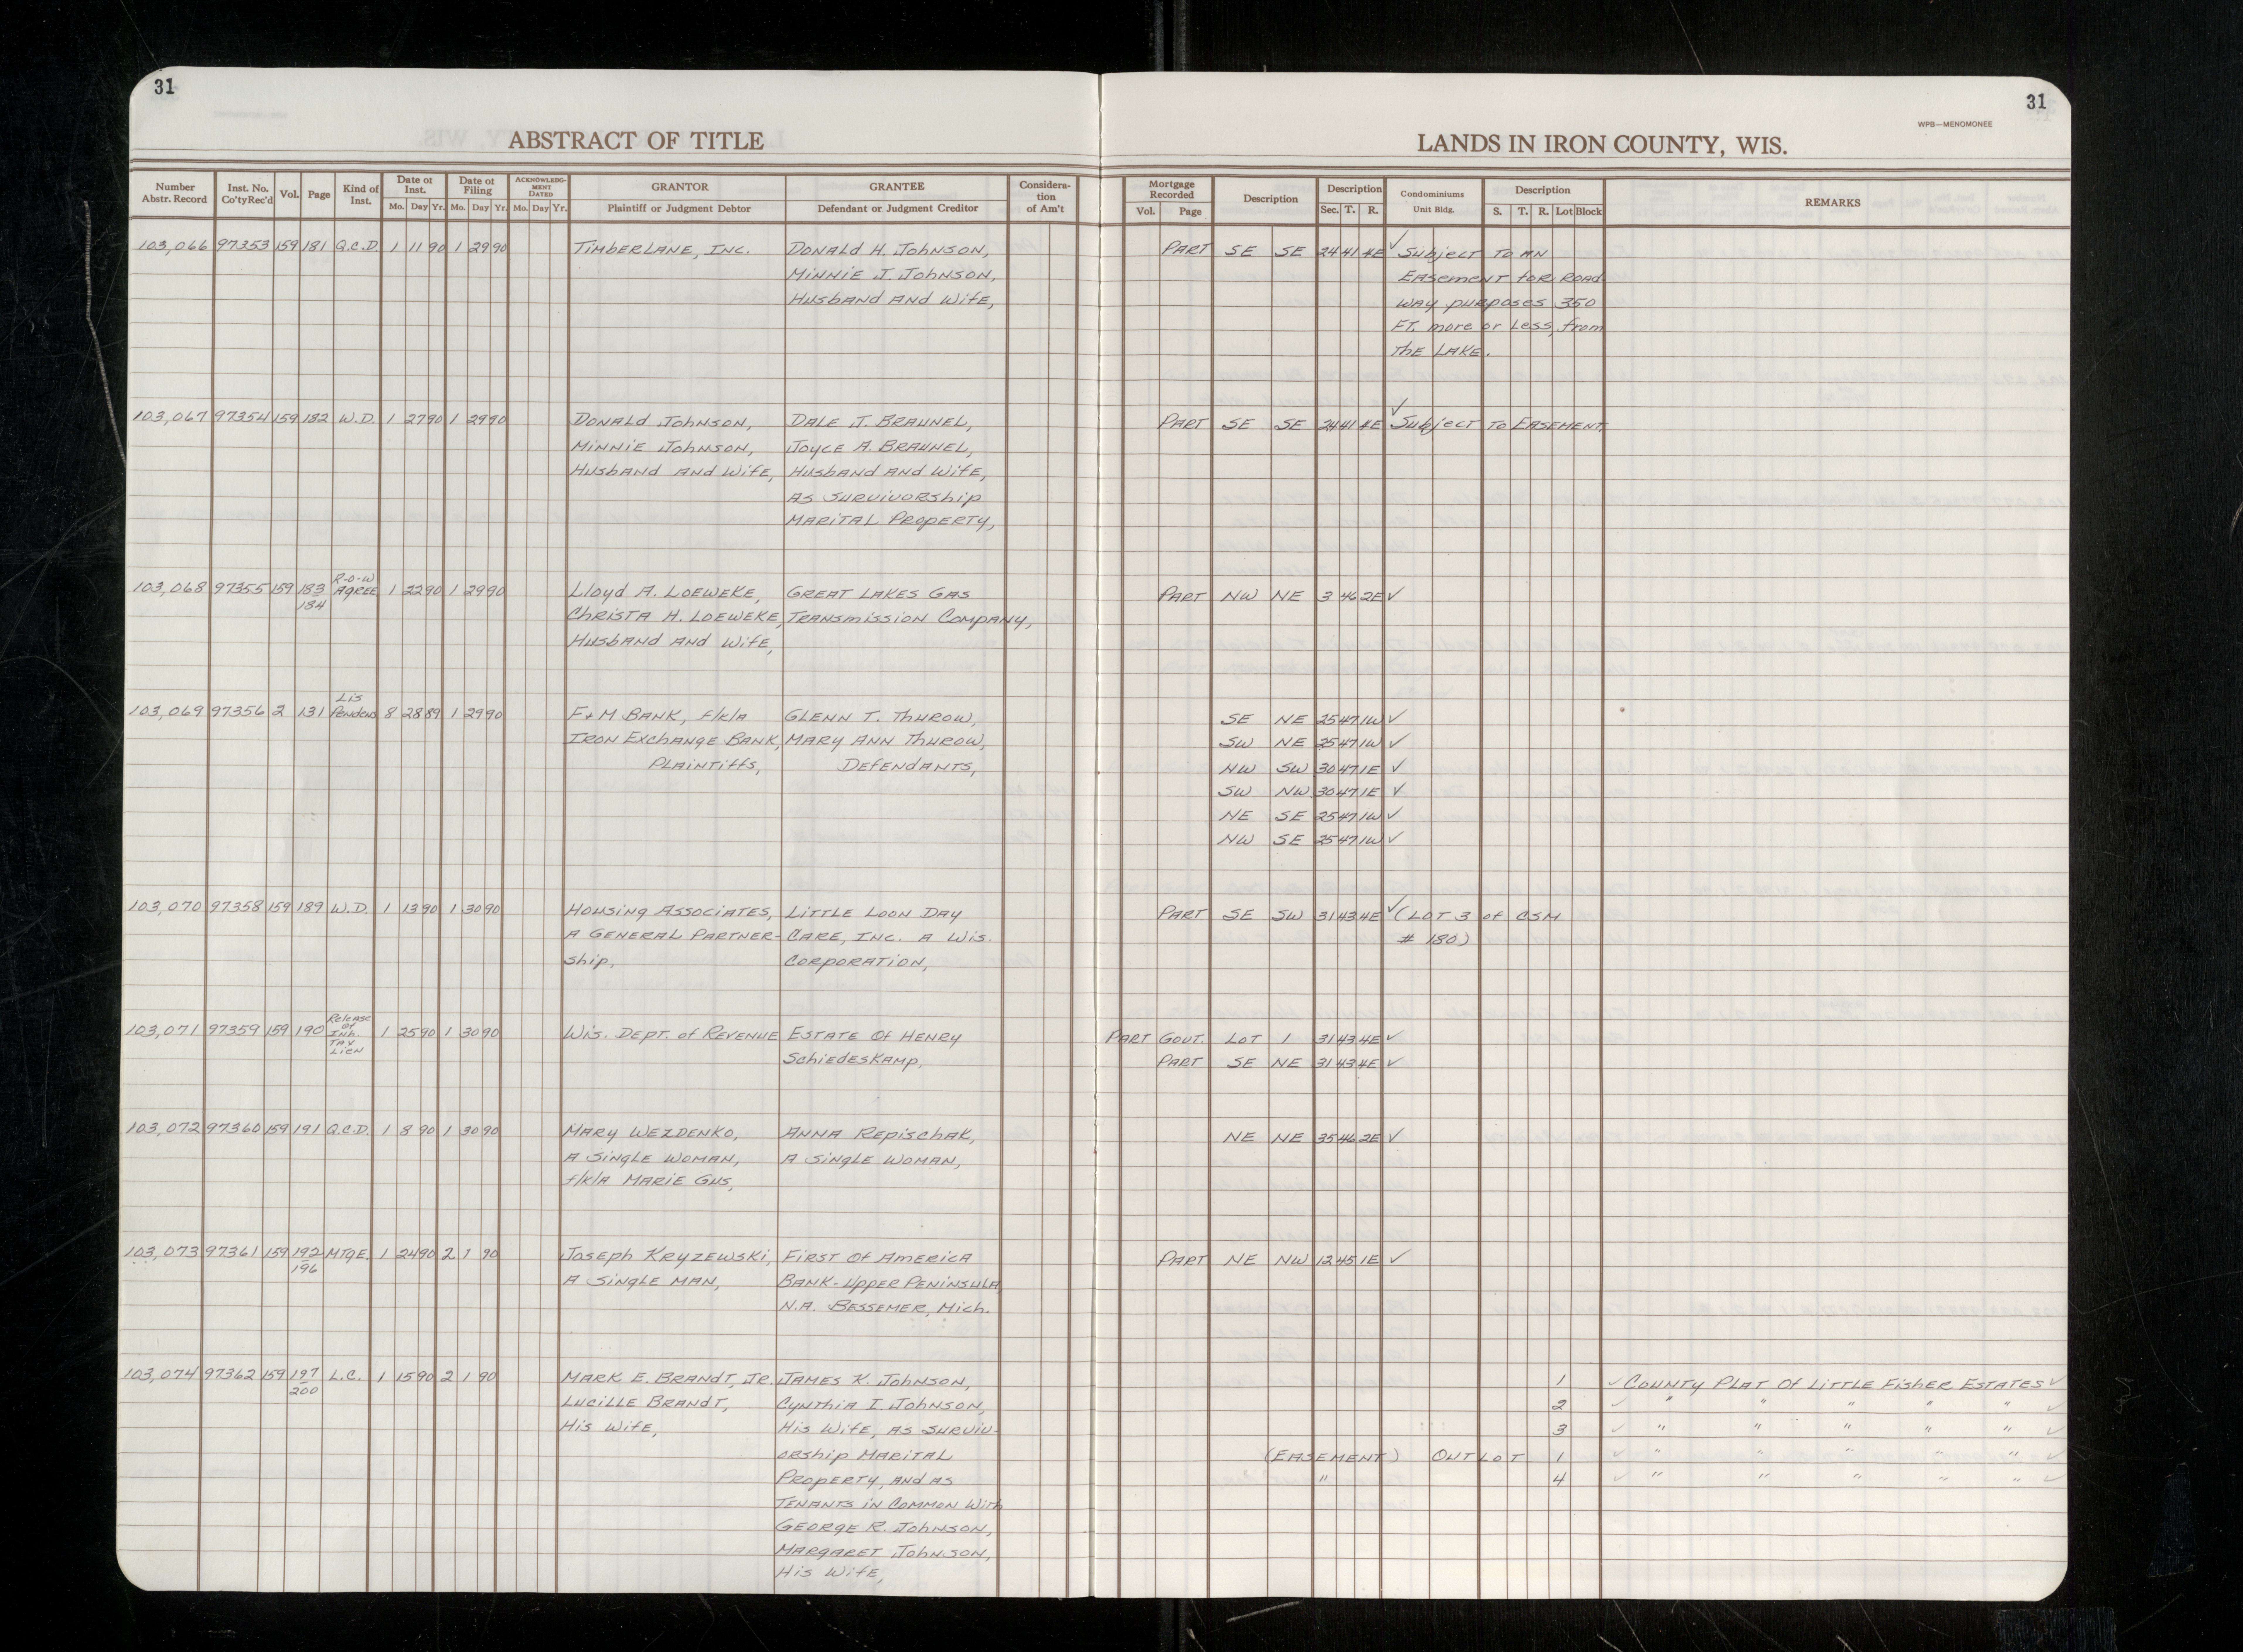 31
31
WPB—MENOMONEE
ABSTRACT OF TITLE
LANDS IN IRON COUNTY, WIS.
Number Abstr. Record Inst. No. Co'ty Rec'd Vol. Page Kind of Inst. Date of Inst. Mo. Day Yr. Date of Filing Mo. Day Yr. ACKNOWLEDGMENT DATED Mo. Day Yr. GRANTOR Plaintiff or Judgment Debtor GRANTEE Defendant or Judgment Creditor Consideration of Am't Mortgage Recorded Vol. Page Description Description Sec. T. R. Condominiums Unit Bldg. Description S. T. R. Lot Block REMARKS
103,066 97353 159 181 Q.C.D. 1 11 90 1 29 90 TIMBERLANE, INC. DONALD H. JOHNSON, PART SE SE 24 41 4E ✓ Subject TO AN
MINNIE J. JOHNSON, EASEMENT FOR ROAD
HUSBAND AND WIFE, WAY PURPOSES 350
FT. more or Less, from
THE LAKE.
103,067 97354 159 182 W.D. 1 27 90 1 29 90 DONALD JOHNSON, DALE J. BRAUNEL, PART SE SE 24 41 4E ✓ Subject TO EASEMENT.
MINNIE JOHNSON, JOYCE A. BRAUNEL,
HUSBAND AND WIFE, HUSBAND AND WIFE,
AS SURVIVORSHIP
MARITAL PROPERTY,
103,068 97355 159 183/184 R-O-W AGREE 1 22 90 1 29 90 Lloyd A. LOEWEKE, GREAT LAKES GAS PART NW NE 3 46 2E ✓
CHRISTA H. LOEWEKE, TRANSMISSION COMPANY,
HUSBAND AND WIFE,
103,069 97356 2 131 Lis Pendens 8 28 89 1 29 90 F+M BANK, f/k/a GLENN T. THUROW, SE NE 25 47 1W ✓
IRON EXCHANGE BANK, MARY ANN THUROW, SW NE 25 47 1W ✓
PLAINTIFFS, DEFENDANTS, NW SW 30 47 1E ✓
SW NW 30 47 1E ✓
NE SE 25 47 1W ✓
NW SE 25 47 1W ✓
103,070 97358 159 189 W.D. 1 13 90 1 30 90 HOUSING ASSOCIATES, LITTLE LOON DAY PART SE SW 31 43 4E ✓ (LOT 3 of CSM
A GENERAL PARTNER- CARE, INC. A WIS. # 180)
SHIP, CORPORATION,
103,071 97359 159 190 Release of Inh. TAX Lien 1 25 90 1 30 90 WIS. DEPT. of REVENUE ESTATE OF HENRY PART GOVT. LOT 1 31 43 4E ✓
SCHIEDESKAMP, PART SE NE 31 43 4E ✓
103,072 97360 159 191 Q.C.D. 1 8 90 1 30 90 MARY WEZDENKO, ANNA REPISCHAK, NE NE 35 46 2E ✓
A SINGLE WOMAN, A SINGLE WOMAN,
f/k/A MARIE GUS,
103,073 97361 159 192/196 MTGE. 1 24 90 2 1 90 JOSEPH KRYZEWSKI, FIRST OF AMERICA PART NE NW 12 45 1E ✓
A SINGLE MAN, BANK-UPPER PENINSULA,
N.A. BESSEMER, MICH.
103,074 97362 159 197/200 L.C. 1 15 90 2 1 90 MARK E. BRANDT, JR. JAMES K. JOHNSON, 1 ✓ COUNTY PLAT OF LITTLE FISHER ESTATES ✓
LUCILLE BRANDT, CYNTHIA I. JOHNSON, 2 ✓ " " " " " ✓
HIS WIFE, HIS WIFE, AS SURVIV- 3 ✓ " " " " " ✓
ORSHIP MARITAL (EASEMENT) OUTLOT 1 ✓ " " " " " ✓
PROPERTY, AND AS " 4 ✓ " " " " " ✓
TENANTS IN COMMON WITH
GEORGE R. JOHNSON,
MARGARET JOHNSON,
HIS WIFE,